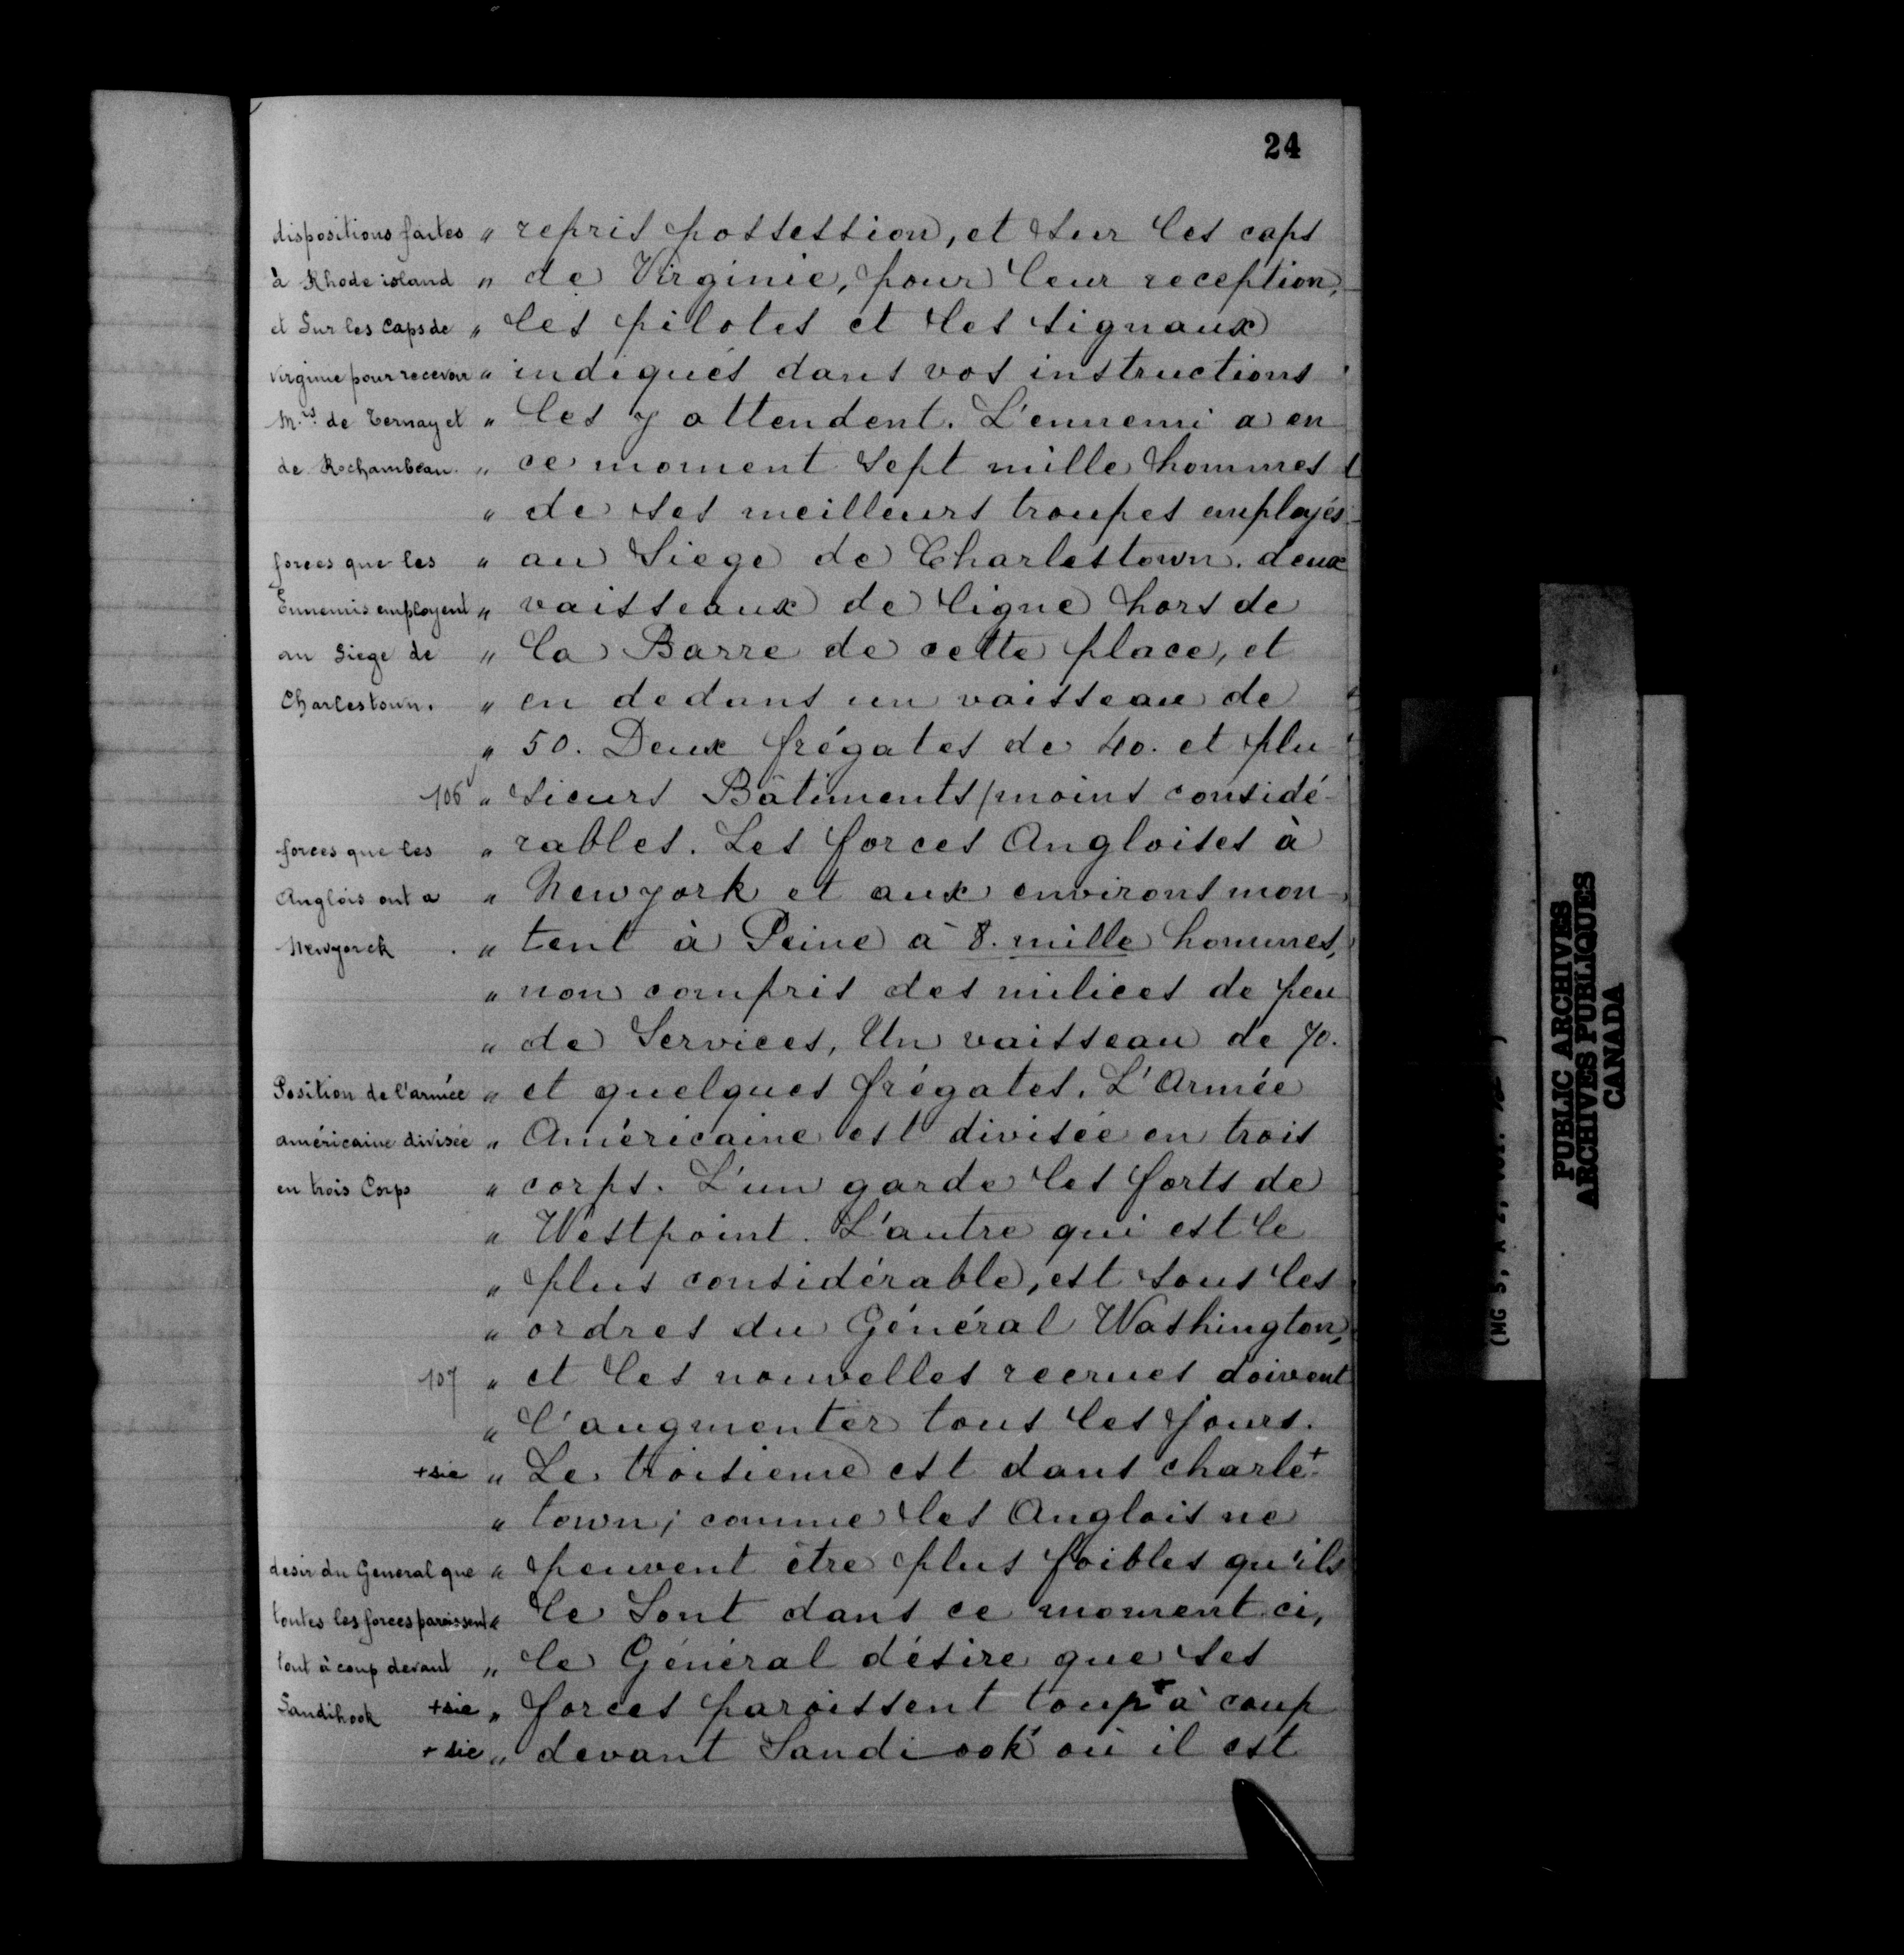 24
dispositions faites
à Rhode island
et Sur les Caps de
virginie pour recevoir
M.rs de Ternay et
de Rochambeau.
forces que les
Ennemis employent
au siege de
Charlestown.
106
forces que les
Anglois ont a
Newyorck
Position de l'armée
américaine divisée
en trois Corps
107
+sic
desir du General que
toutes les forces paroissent
tout à coup devant
Sandihook +sic
+sic
" repris possession, et sur les caps
" de Virginie, pour leur reception,
" les pilotes et les signaux
" indiqués dans vos instructions
" les y attendent. L'ennemi a en
" ce moment sept mille hommes
" de ses meilleurs troupes employés
" au Siege de Charlestown. deux
" vaisseaux de ligne hors de
" la Barre de cette place, et
" en dedans un vaisseau de
" 50. Deux frégates de 40. et plu
" sieurs Bâtiments/moins considé-
" rables. Les forces Angloises à
" Newyork et aux environs mon-
" tent à Peine à 8. mille hommes,
" non compris des milices de peu
" de Services, Un vaisseau de 70.
" et quelques frégates. L'Armée
" Américaine est divisée en trois
" corps. L'un garde les forts de
" Westpoint. L'autre qui est le
" plus considérable, est sous les
" ordres du Général Washington,
" et les nouvelles recrues doivent
" l'augmenter tous les jours.
" Le troisieme est dans charle+-
" town; comme les Anglois ne
" peuvent être plus foibles qu'ils
" le Sont dans ce moment ci,
" le Général désire que ses
" forces paroissent toup+ à coup
" devant Sandi-ook où il est
PUBLIC ARCHIVES
ARCHIVES PUBLIQUES
CANADA